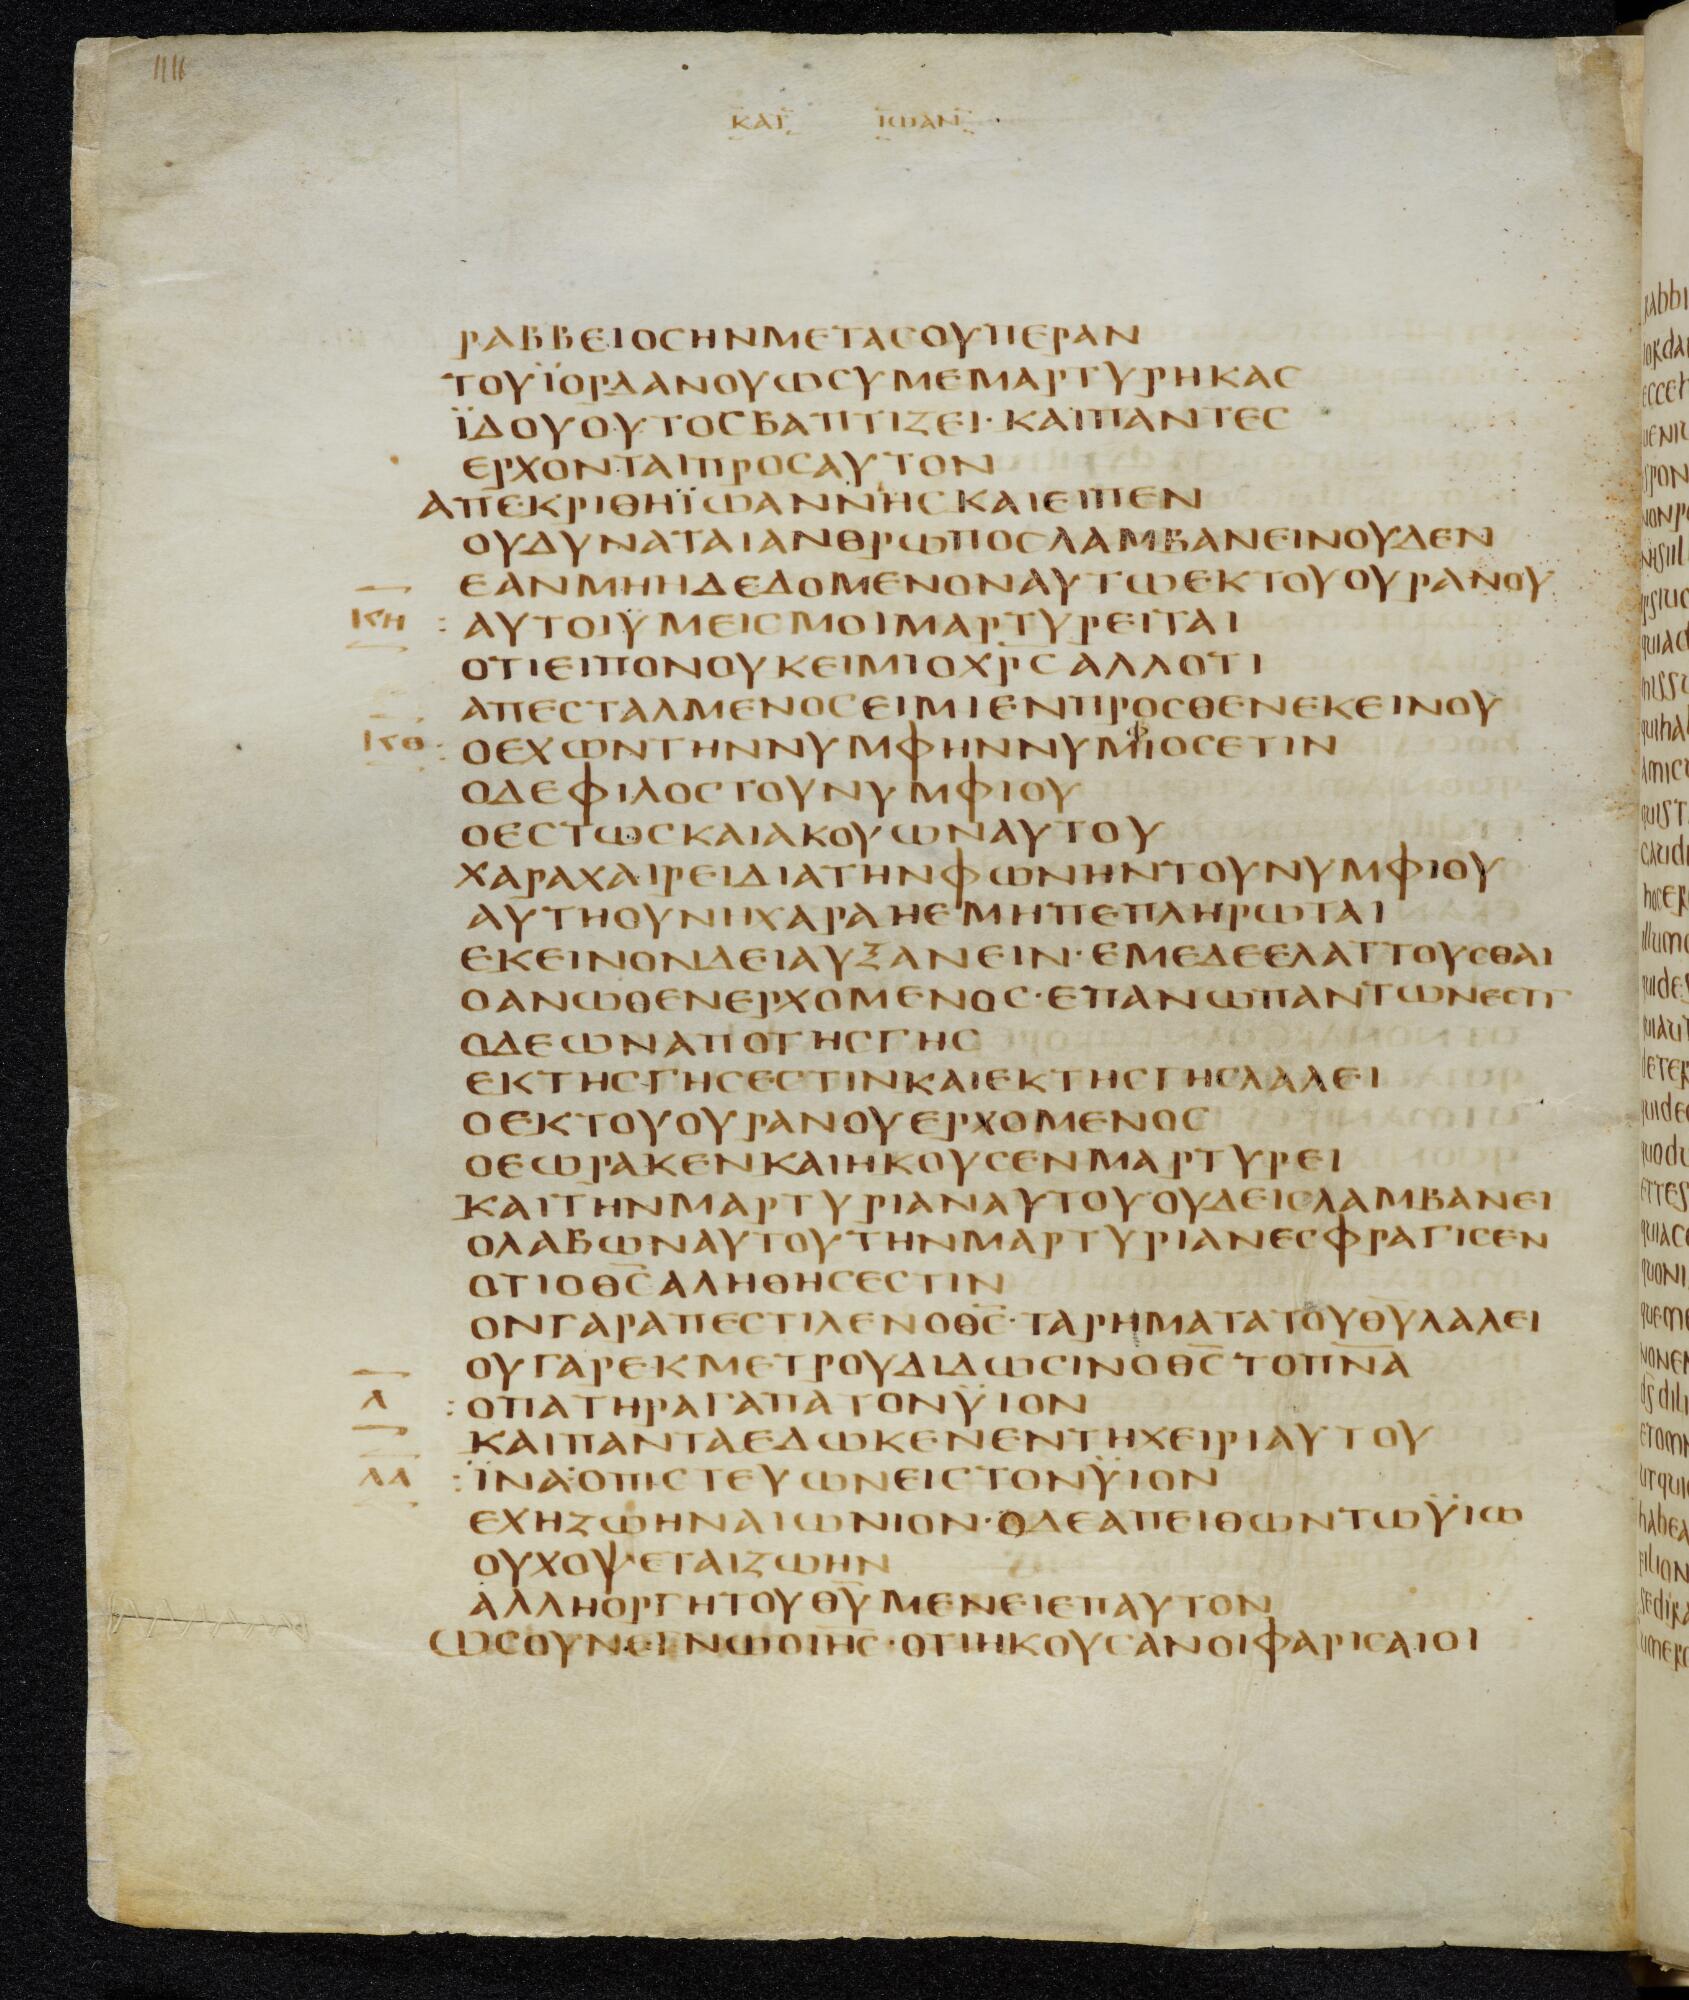 ΚΑΤ ΙΩΑΝ
ΡΑΒΒΕΙΟCΗΝΜΕΤΑCΟΥΠΕΡΑΝ
ΤΟΥΪΟΡΔΑΝΟΥΩCΥΜΕΜΑΡΤΥΡΗΚΑC
ΪΔΟΥΟΥΤΟCΒΑΠΤΙΖΕΙ·ΚΑΙΠΑΝΤΕC
ΕΡΧΟΝΤΑΙΠΡΟCΑΥΤΟΝ
ΑΠΕΚΡΙΘΗΪΩΑΝΝΗCΚΑΙΕΙΠΕΝ
ΟΥΔΥΝΑΤΑΙΑΝΘΡΩΠΟCΛΑΜΒΑΝΕΙΝΟΥΔΕΝ
ΕΑΝΜΗΗΔΕΔΟΜΕΝΟΝΑΥΤΩΕΚΤΟΥΟΥΡΑΝΟΥ
ΚΗ : ΑΥΤΟΙΫΜΕΙCΜΟΙΜΑΡΤΥΡΕΙΤΑΙ
ΟΤΙΕΙΠΟΝΟΥΚΕΙΜΙΟΧΡ̅CΑΛΛΟΤΙ
ΑΠΕCΤΑΛΜΕΝΟCΕΙΜΙΕΝΠΡΟCΘΕΝΕΚΕΙΝΟΥ
ΚΘ : ΟΕΧΩΝΤΗΝΝΥΜΦΗΝΝΥΜΦΙΟCΕΤΙΝ
ΟΔΕΦΙΛΟCΤΟΥΝΥΜΦΙΟΥ
ΟΕCΤΩCΚΑΙΑΚΟΥΩΝΑΥΤΟΥ
ΧΑΡΑΧΑΙΡΕΙΔΙΑΤΗΝΦΩΝΗΝΤΟΥΝΥΜΦΙΟΥ
ΑΥΤΗΟΥΝΗΧΑΡΑΗΕΜΗΠΕΠΛΗΡΩΤΑΙ
ΕΚΕΙΝΟΝΔΕΙΑΥΞΑΝΕΙΝ·ΕΜΕΔΕΕΛΑΤΤΟΥCΘΑΙ
ΟΑΝΩΘΕΝΕΡΧΟΜΕΝΟC·ΕΠΑΝΩΠΑΝΤΩΝΕCΤΙ
ΟΔΕΩΝΑΠΟΤΗCΓΗC
ΕΚΤΗCΓΗCΕCΤΙΝΚΑΙΕΚΤΗCΓΗCΛΑΛΕΙ
ΟΕΚΤΟΥΟΥΡΑΝΟΥΕΡΧΟΜΕΝΟC
ΟΕΩΡΑΚΕΝΚΑΙΗΚΟΥCΕΝΜΑΡΤΥΡΕΙ
ΚΑΙΤΗΝΜΑΡΤΥΡΙΑΝΑΥΤΟΥΟΥΔΕΙCΛΑΜΒΑΝΕΙ
ΟΛΑΒΩΝΑΥΤΟΥΤΗΝΜΑΡΤΥΡΙΑΝΕCΦΡΑΓΙCΕΝ
ΟΤΙΟΘC̅ΑΛΗΘΗCΕCΤΙΝ
ΟΝΓΑΡΑΠΕCΤΙΛΕΝΟΘC̅·ΤΑΡΗΜΑΤΑΤΟΥΘΥ̅ΛΑΛΕΙ
ΟΥΓΑΡΕΚΜΕΤΡΟΥΔΙΔΩCΙΝΟΘC̅ΤΟΠΝ̅Α
Λ : ΟΠΑΤΗΡΑΓΑΠΑΤΟΝΫΙΟΝ
ΚΑΙΠΑΝΤΑΕΔΩΚΕΝΕΝΤΗΧΕΙΡΙΑΥΤΟΥ
ΛΑ : ΪΝΑΟΠΙCΤΕΥΩΝΕΙCΤΟΝΫΙΟΝ
ΕΧΗΖΩΗΝΑΙΩΝΙΟΝ·ΟΔΕΑΠΕΙΘΩΝΤΩΫΙΩ
ΟΥΧΟΨΕΤΑΙΖΩΗΝ
ΑΛΛΗΟΡΓΗΤΟΥΘΥ̅ΜΕΝΕΙΕΠΑΥΤΟΝ
ΩCΟΥΝΕΙΝΩΟΙΗC̅·ΟΤΙΗΚΟΥCΑΝΟΙΦΑΡΙCΑΙΟΙ